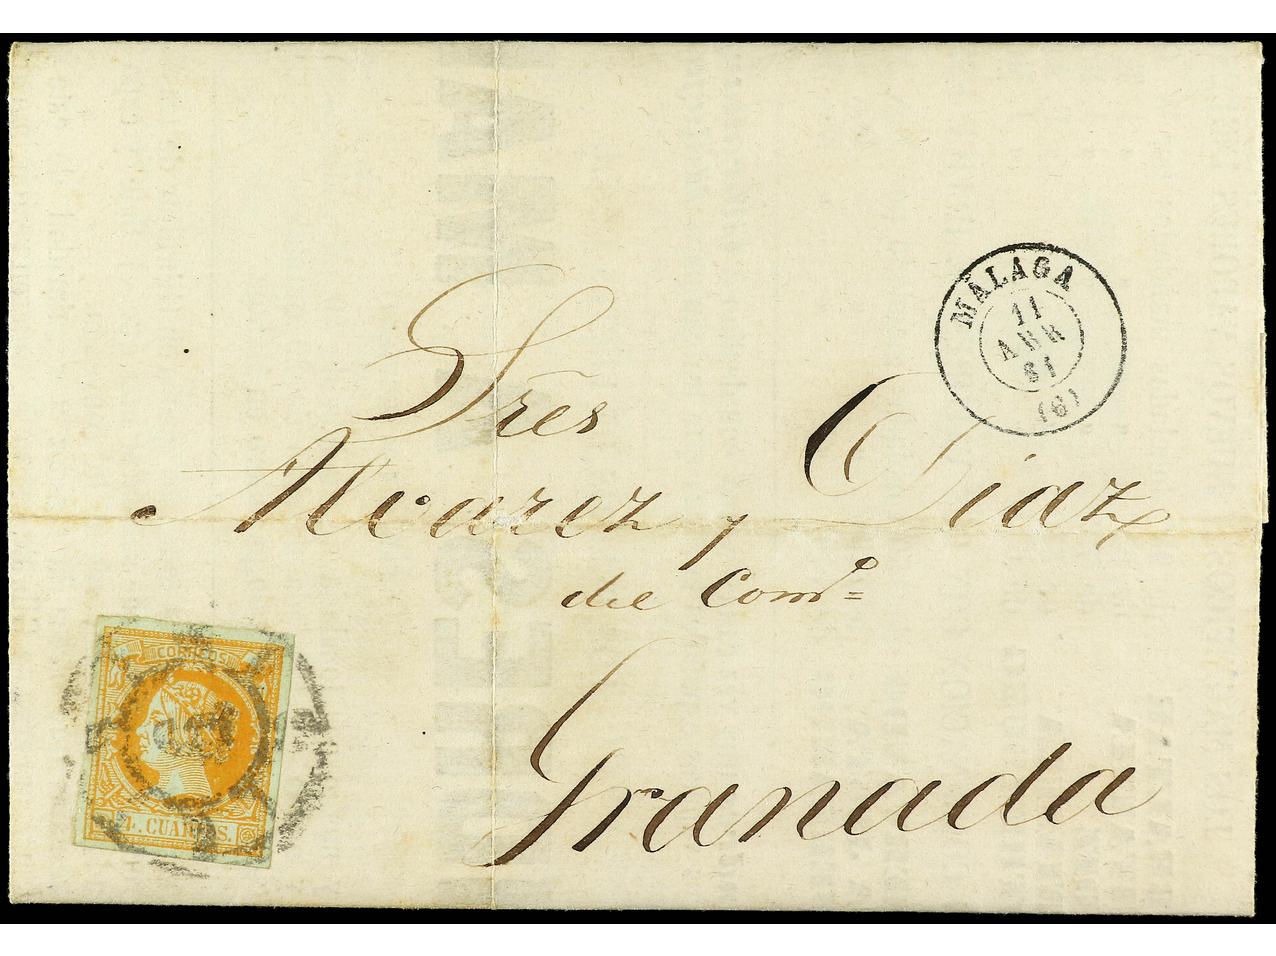 MÁLAGA
11
ABR
61
(6)
Sres
Alvarez y Diaz
del Como=
Granada
CORREOS
4. CUARTOS.